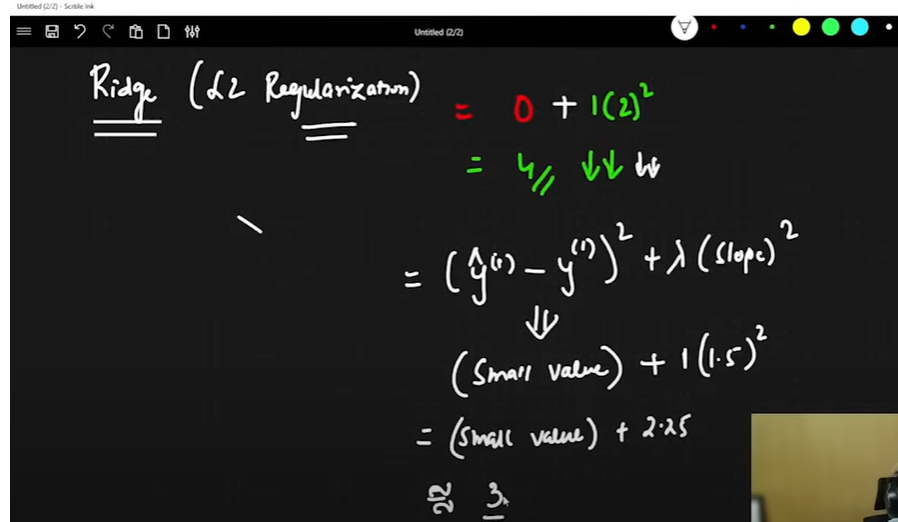 Untitled (2/2) - Scrble Ink
Untitled (2/2)
Ridge (L2 Regularization)
= 0 + 1(2)²
= 4 ↓↓ ↓↓
= (ŷ⁽¹⁾ − y⁽¹⁾)² + λ (slope)²
⇓
(Small value) + 1(1.5)²
= (Small value) + 2.25
≅ 3